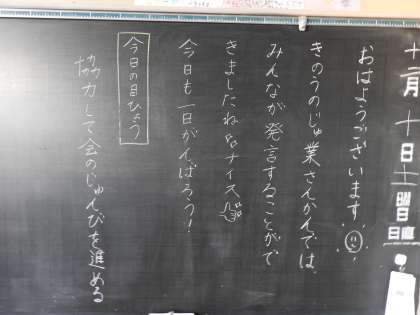 十二月十日土曜日
日直
おはようございます
きのうのじゅ業さんかんでは、
みんなが発言することがで
きましたね ナイス
今日も一日がんばろう!
今日の目ひょう
協力して会のじゅんびを進める